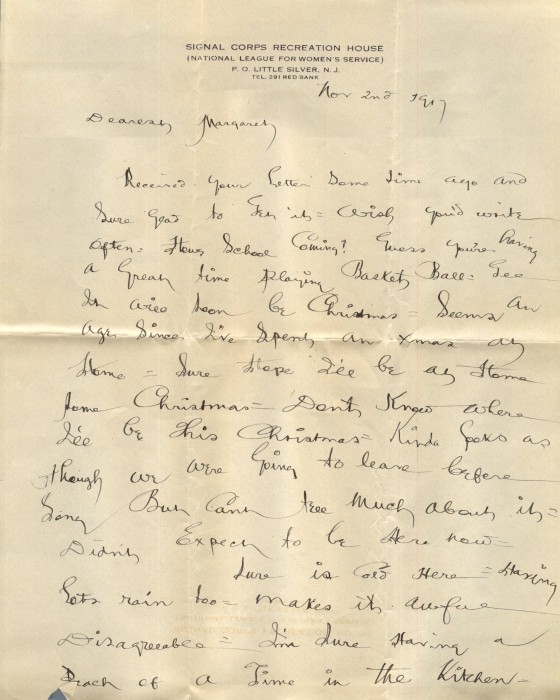 SIGNAL CORPS RECREATION HOUSE
(NATIONAL LEAGUE FOR WOMEN'S SERVICE)
P. O. LITTLE SILVER, N. J.
TEL. 291 RED BANK
Nov 2nd 1917
Dearest Margaret
Received your letter some time ago and
Sure glad to get it = Wish you'd write
often = Hows School Coming? Guess you're having
a Great time playing Basket Ball = Gee
It will soon be Christmas = Seems an
age since I've Spent an Xmas at
Home = Sure Hope I'll be at Home
some Christmas = Don't Know where
I'll be this Christmas = Kinda looks as
though we were Going to leave before
long But Can't tell Much about it =
Didn't Expect to be Here now =
Sure is Cold Here = Having
lots rain too = makes it awful
Disagreeable = I'm Sure Having a
Peach of a Time in the Kitchen =